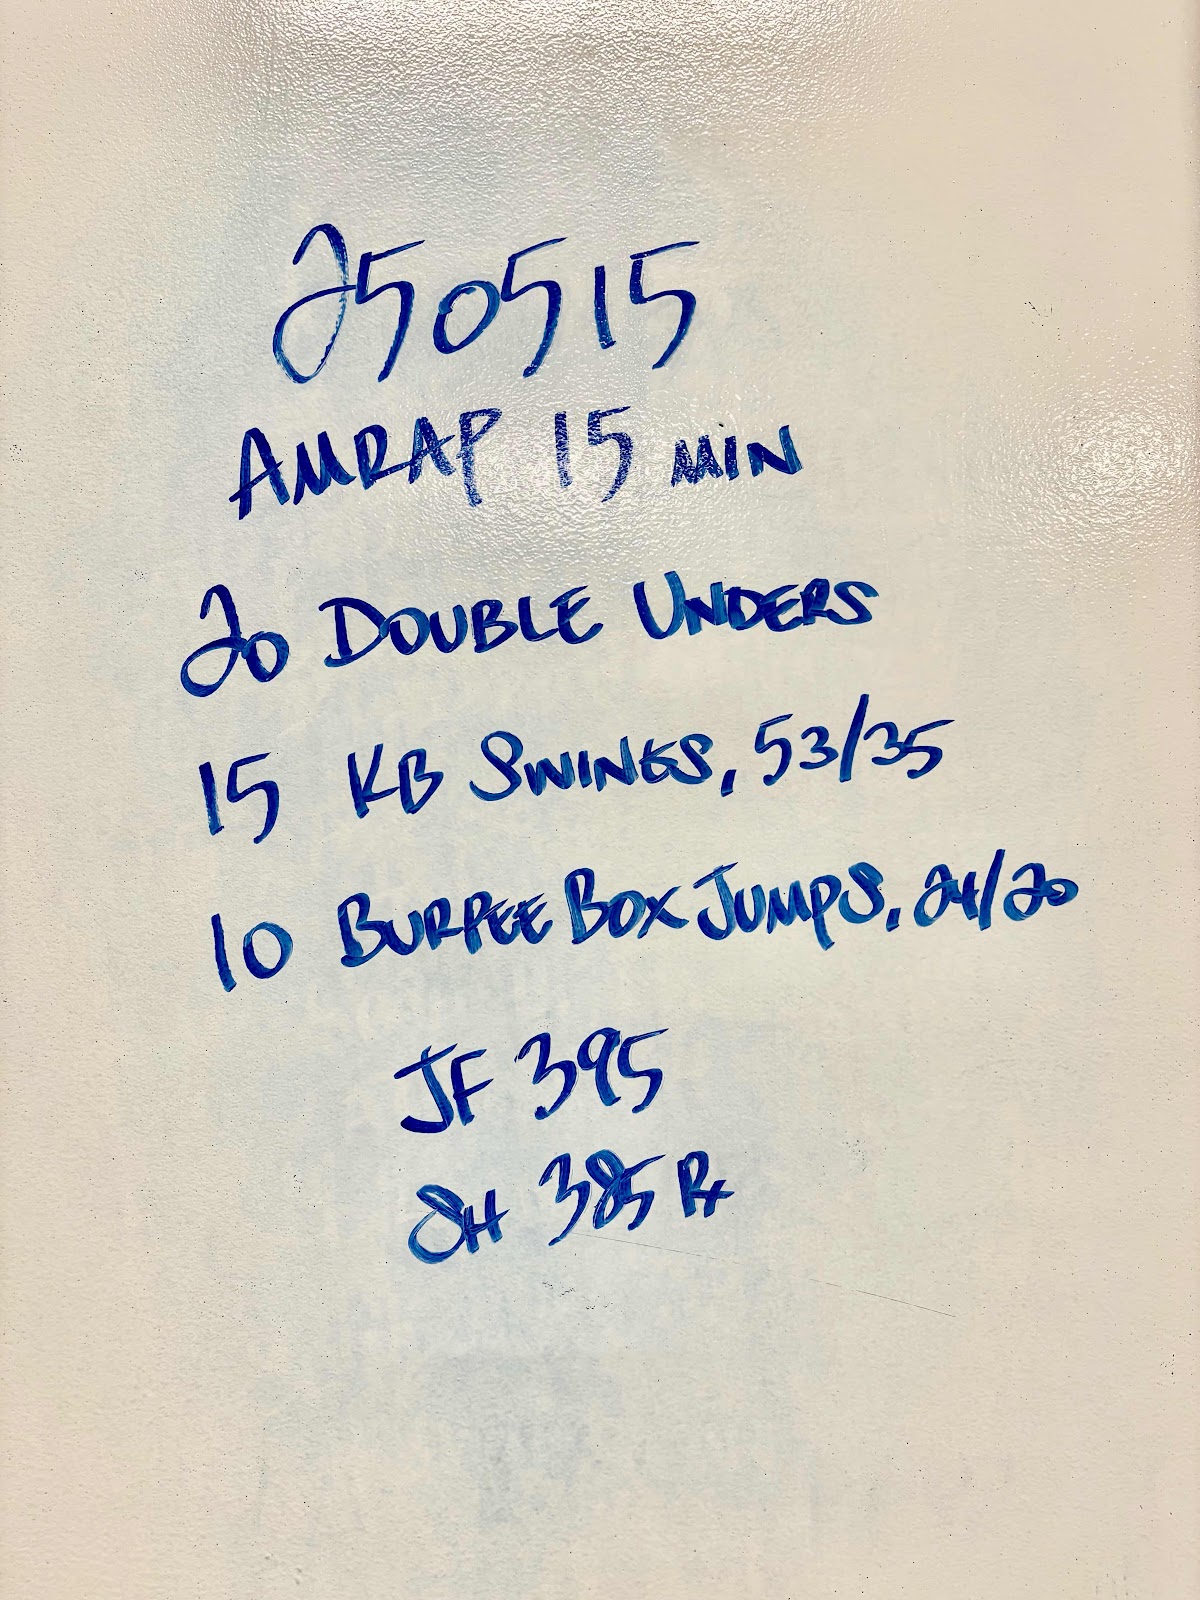 250515
AMRAP 15 MIN
20 DOUBLE UNDERS
15 KB SWINGS, 53/35
10 BURPEE BOX JUMPS, 24/20
JF 395
SH 385 Rx